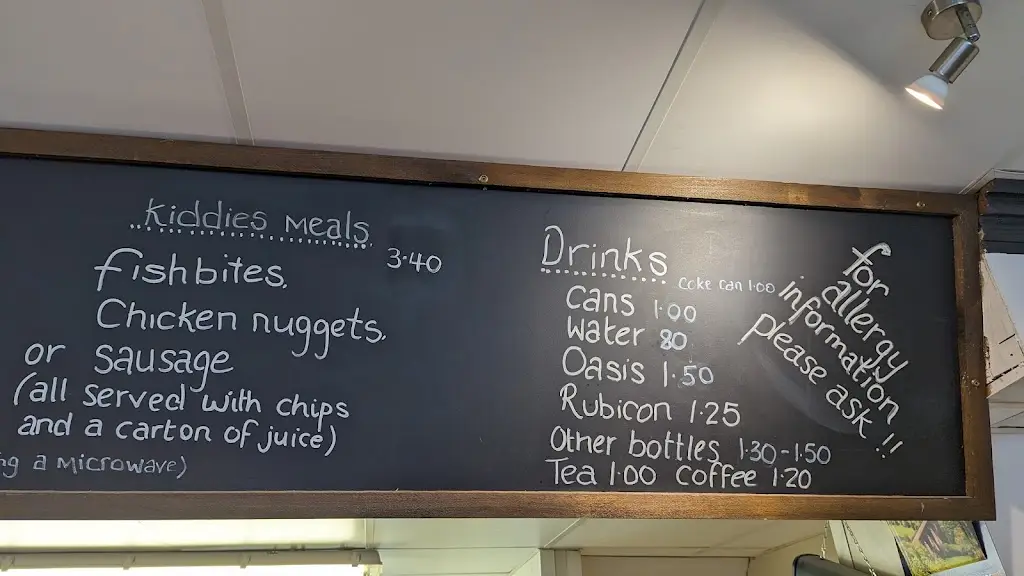 Kiddies Meals
3.40
fishbites.
Chicken nuggets.
or sausage
(all served with chips
and a carton of juice)
a microwave)
Drinks
coke can 1.00
cans 1.00
water 80
Oasis 1.50
Rubicon 1.25
Other bottles 1.30-1.50
Tea 1.00 Coffee 1.20
for
allergy
information
please ask!!